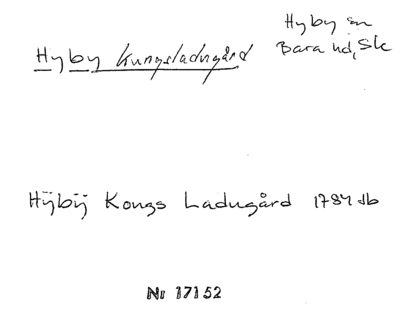 Hyby Kungsladugård
Hyby sn
Bara hd, Sk
Hÿbÿ Kongs Ladugård 1784 db
Nr 17152